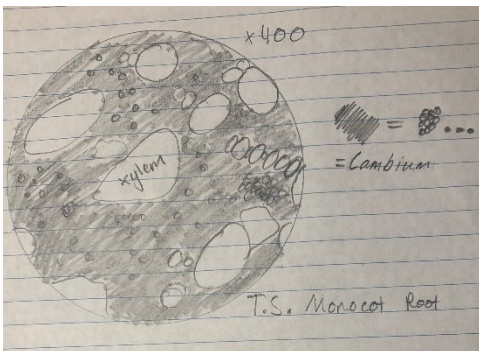 ×400
xylem
=
= Cambium
T.S. Monocot Root